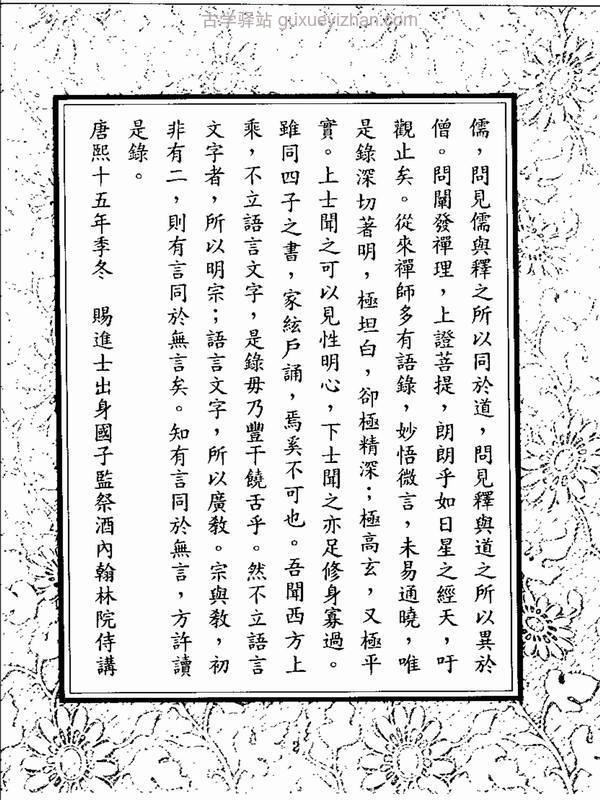 古学驿站 guxueyizhan.com
儒，問見儒與釋之所以同於道，問見釋與道之所以異於
僧。問闡發禪理，上證菩提，朗朗乎如日星之經天，吁
觀止矣。從來禪師多有語錄，妙悟微言，未易通曉，唯
是錄深切著明，極坦白，卻極精深；極高玄，又極平
實。上士聞之可以見性明心，下士聞之亦足修身寡過。
雖同四子之書，家絃戶誦，焉奚不可也。吾聞西方上
乘，不立語言文字，是錄毋乃豐干饒舌乎。然不立語言
文字者，所以明宗；語言文字，所以廣教。宗與教，初
非有二，則有言同於無言矣。知有言同於無言，方許讀
是錄。
唐熙十五年季冬　賜進士出身國子監祭酒內翰林院侍講